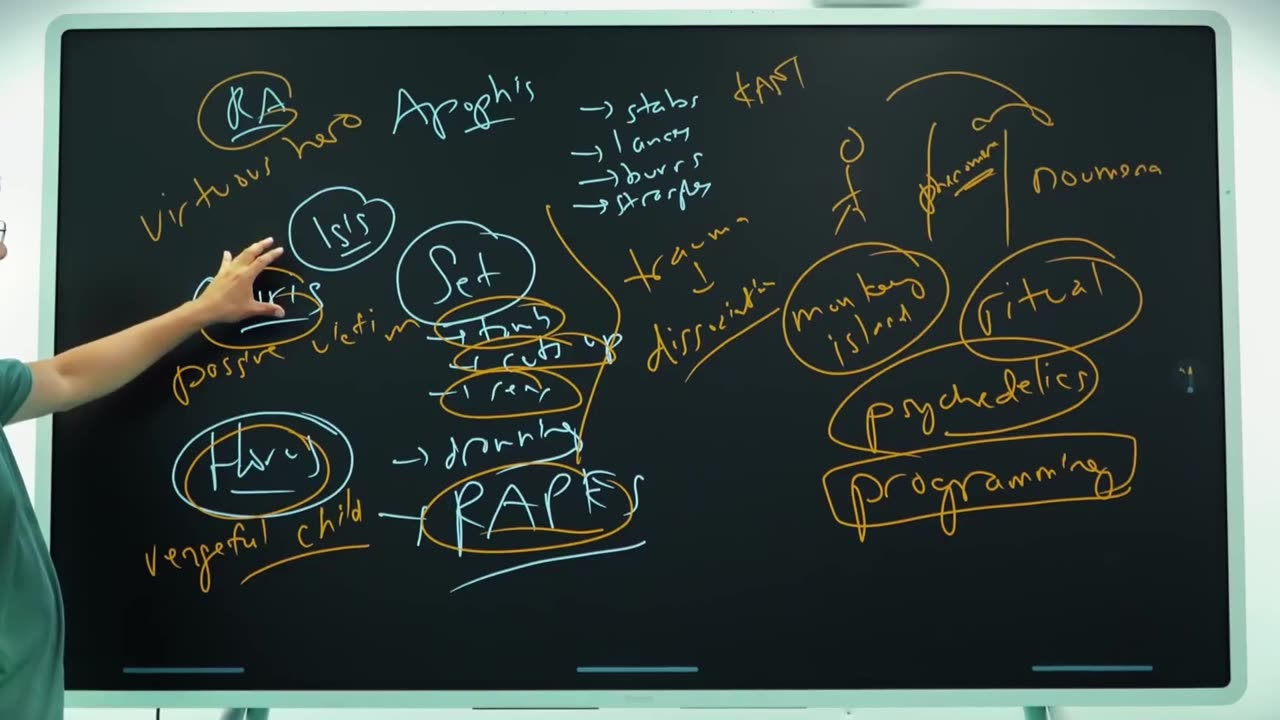 RA
virtuous hero
Apophis
→ stabs
→ lances
→ burns
→
KANT
phenomena
noumena
Isis
Set
passive victim
→ tomb
→ cuts up
drowning
Horus
vengeful child
→ RAPES
trauma
↓
dissociation
monkey
island
ritual
psychedelics
programming